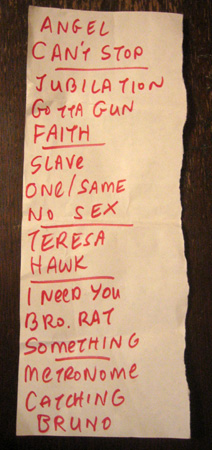 ANGEL
CAN'T STOP
JUBILATION
GOTTA GUN
FAITH
SLAVE
ONE/SAME
NO SEX
TERESA
HAWK
I NEED YOU
BRO. RAT
SOMETHING
METRONOME
CATCHING
BRUNO